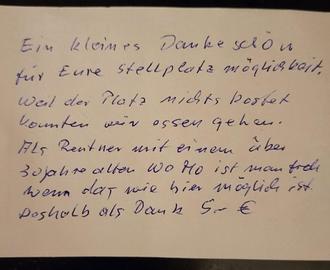 Ein kleines Dankeschön
für Eure Stellplatz möglichkeit.
Weil der Platz nichts kostet
konnten wir essen gehen.
Als Rentner mit einem über
30 jahre alten WoMo ist man froh
wenn das wie hier möglich ist.
Deshalb als Dank 5.- €